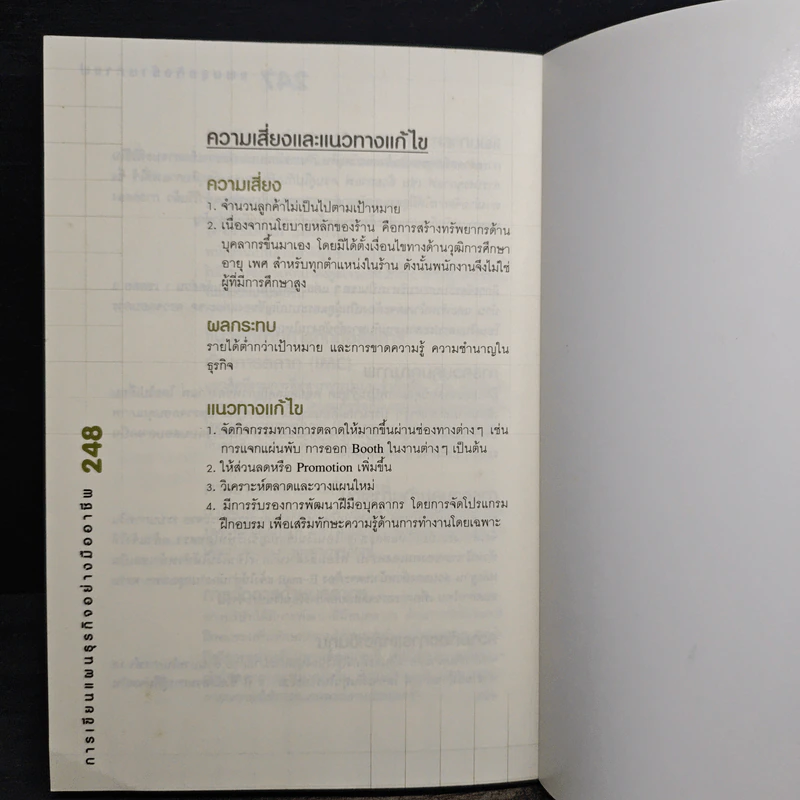 ความเสี่ยงและแนวทางแก้ไข
ความเสี่ยง
1. จำนวนลูกค้าไม่เป็นไปตามเป้าหมาย
2. เนื่องจากนโยบายหลักของร้าน คือการสร้างทรัพยากรด้าน
บุคลากรขึ้นมาเอง โดยมิได้ตั้งเงื่อนไขทางด้านวุฒิการศึกษา
อายุ เพศ สำหรับทุกตำแหน่งในร้าน ดังนั้นพนักงานจึงไม่ใช่
ผู้ที่มีการศึกษาสูง
ผลกระทบ
รายได้ต่ำกว่าเป้าหมาย และการขาดความรู้ ความชำนาญใน
ธุรกิจ
แนวทางแก้ไข
1. จัดกิจกรรมทางการตลาดให้มากขึ้นผ่านช่องทางต่างๆ เช่น
การแจกแผ่นพับ การออก Booth ในงานต่างๆ เป็นต้น
2. ให้ส่วนลดหรือ Promotion เพิ่มขึ้น
3. วิเคราะห์ตลาดและวางแผนใหม่
4. มีการรับรองการพัฒนาฝีมือบุคลากร โดยการจัดโปรแกรม
ฝึกอบรม เพื่อเสริมทักษะความรู้ด้านการทำงานโดยเฉพาะ
การเขียนแผนธุรกิจอย่างมืออาชีพ 248